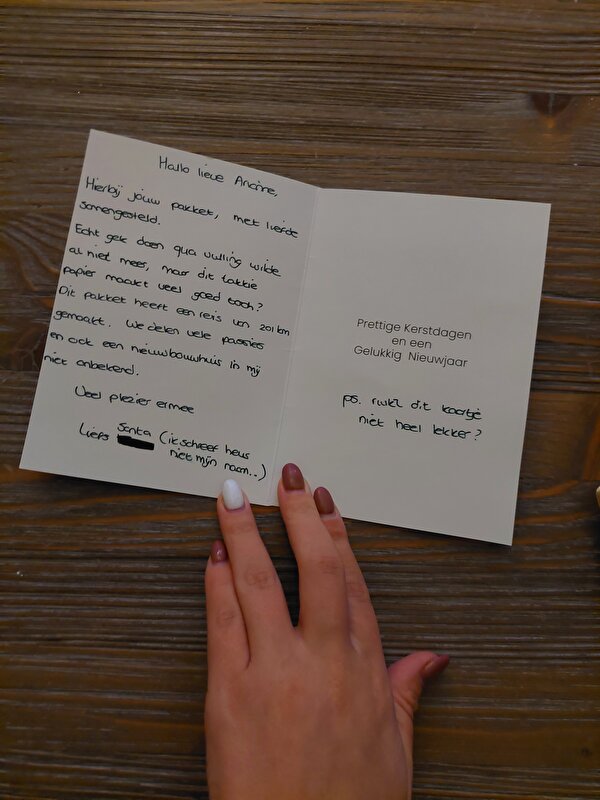 Hallo lieve Arianne,
Hierbij jouw pakket, met liefde
samengesteld.
Echt gek doen qua vulling wilde
al niet meer, maar dit
papier maakt veel goed toch?
Dit pakket heeft een reis van 201 km
gemaakt. We delen vele passies
en ook een nieuwbouwhuis is mij
niet onbekend.
Veel plezier ermee
Liefs Santa (ik schreef heus
niet mijn naam..)
Prettige Kerstdagen
en een
Gelukkig Nieuwjaar
ps. ruikt dit kaartje
niet heel lekker?